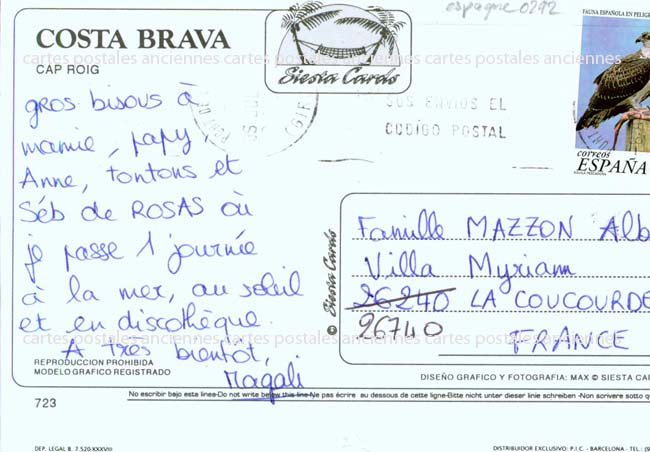 espagne 0292
COSTA BRAVA
CAP ROIG
Siesta Cards
FAUNA ESPAÑOLA EN PELIGR
SUS ENVIOS EL
CODIGO POSTAL
correos
ESPAÑA
cartes postales anciennes cartes postales anciennes cartes postales anciennes
gros bisous à
mamie, papy,
Anne, tontons et
Séb de ROSAS où
je passe 1 journée
à la mer, au soleil
et en discothèque.
A très bientot,
Magali
© Siesta Cards
Famille MAZZON Alb
Villa Myriam
26240 LA COUCOURDE
26740
FRANCE
cartes postales anciennes cartes postales anciennes cartes postales anciennes
REPRODUCCION PROHIBIDA
MODELO GRAFICO REGISTRADO
DISEÑO GRAFICO Y FOTOGRAFIA: MAX © SIESTA CA
723
No escribir bajo esta linea-Do not write below this line-Ne pas écrire au dessous de cette ligne-Bitte nicht unter dieser linie schreiben-Non scrivere sotto q
DEP. LEGAL B. 7.520-XXXVIII
DISTRIBUIDOR EXCLUSIVO: P.I.C. - BARCELONA - TEL.: (9